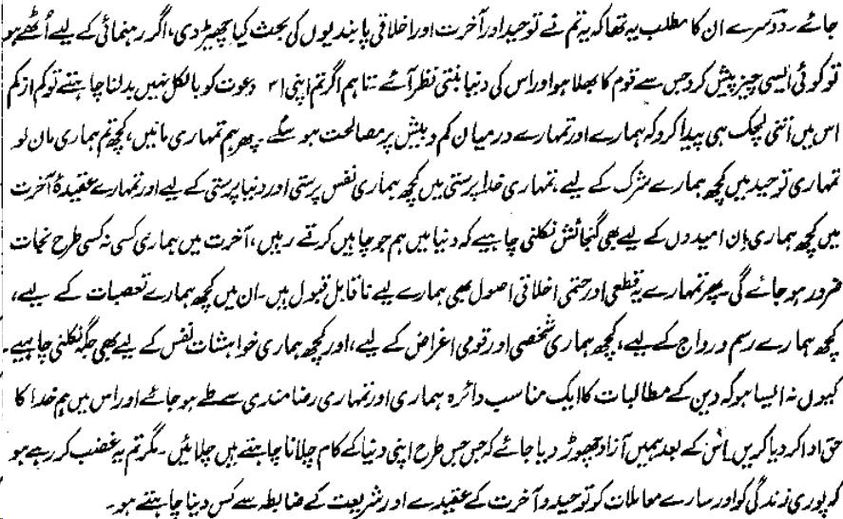 جائے۔ دوسرے ان کا مطلب یہ تھا کہ یہ تم نے توحید اور آخرت اور اخلاقی پابندیوں کی بحث کیا چھیڑ دی، اگر رہنمائی کے لیے اُٹھے ہو
تو کوئی ایسی چیز پیش کرو جس سے قوم کا بھلا ہو اور اس کی دنیا بنتی نظر آئے۔ تاہم اگر تم اپنی اس دعوت کو بالکل نہیں بدلنا چاہتے تو کم از کم
اس میں اتنی لچک ہی پیدا کرو کہ ہمارے اور تمہارے درمیان کم و بیش پر مصالحت ہو سکے۔ پھر ہم تمہاری مانیں، کچھ تم ہماری مان لو
تمہاری توحید میں کچھ ہمارے شرک کے لیے، تمہاری خدا پرستی میں کچھ ہماری نفس پرستی اور دنیا پرستی کے لیے اور تمہارے عقیدۂ آخرت
میں کچھ ہماری اِن امیدوں کے لیے بھی گنجائش نکلنی چاہیے کہ دنیا میں ہم جو چاہیں کرتے رہیں، آخرت میں ہماری کسی نہ کسی طرح نجات
ضرور ہو جائے گی۔ پھر تمہارے یہ قطعی اور حتمی اخلاقی اصول بھی ہمارے لیے ناقابل قبول ہیں۔ ان میں کچھ ہمارے تعصبات کے لیے،
کچھ ہمارے رسم و رواج کے لیے، کچھ ہماری شخصی اور قومی اغراض کے لیے، اور کچھ ہماری خواہشات نفس کے لیے بھی جگہ نکلنی چاہیے۔
کیوں نہ ایسا ہو کہ دین کے مطالبات کا ایک مناسب دائرہ ہماری اور تمہاری رضامندی سے طے ہو جائے اور اس میں ہم خدا کا
حق ادا کر دیا کریں۔ اس کے بعد ہمیں آزاد چھوڑ دیا جائے کہ جس جس طرح اپنی دنیا کے کام چلانا چاہتے ہیں چلائیں۔ مگر تم یہ غضب کر رہے ہو
کہ پوری زندگی کو اور سارے معاملات کو توحید و آخرت کے عقیدے اور شریعت کے ضابطہ سے کس دینا چاہتے ہو۔